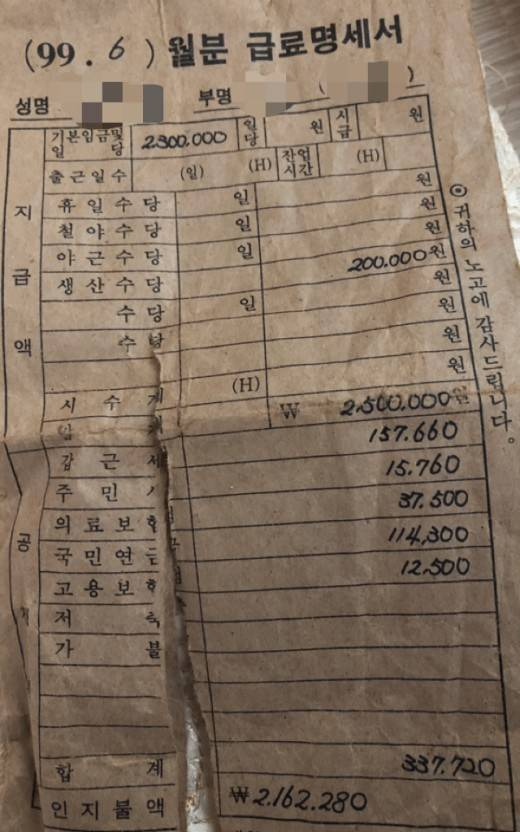 (99. 6) 월분 급료명세서
성명 부명 ( )
지급액
기본임금및 일당 2300.000 일당 원 시급 원
출근일수 (일) (H) 잔업시간 (H)
휴일수당 일 원
철야수당 일 원
야근수당 일 원
생산수당 200.000원
수당 일 원
수당 원
원
시수계 (H) 원
₩ 2.500.000원
공
갑근세 157.660
주민 15.760
의료보험 37.500
국민연금 114,300
고용보험 12.500
저축
가불
합계 337.720
인지불액 ₩2.162.280
◉ 귀하의 노고에 감사드립니다。